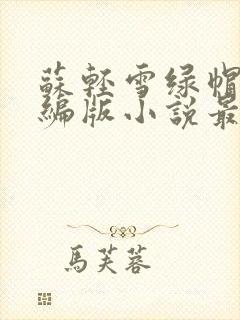 蘇輕雪绿帽
編版小說最
馬芙蓉